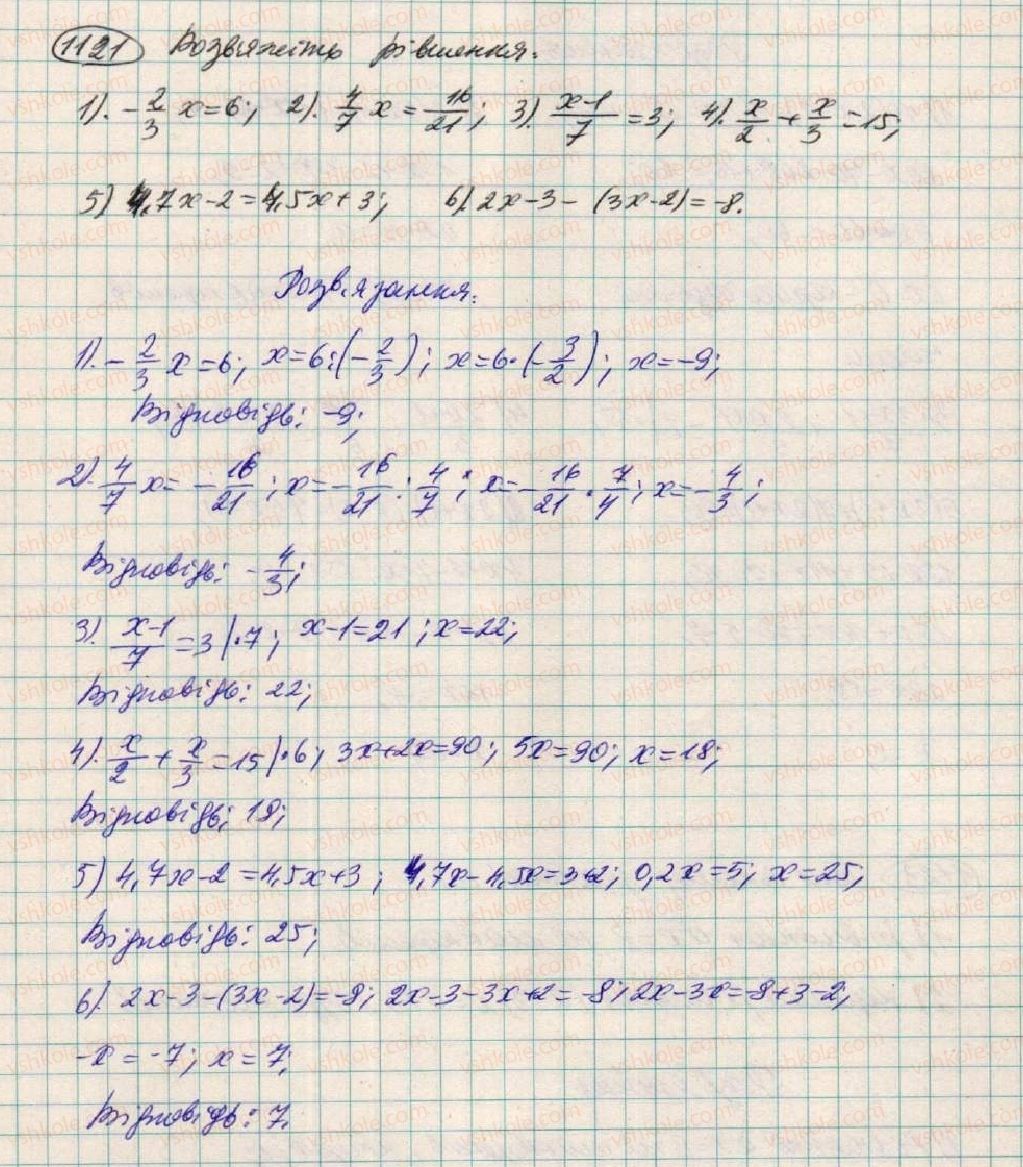 1121 Розвяжіть рівняння:
1). -2/3 x=6; 2). 4/7 x = -16/21; 3). x-1/7 =3; 4). x/2 + x/3 =15;
5) 4,7x-2=4,5x+3; 6). 2x-3-(3x-2)=-8.
Розвязання:
1). -2/3 x=6; x=6:(-2/3); x=6·(-3/2); x=-9;
Відповідь: -9;
2). 4/7 x= -16/21; x= -16/21 : 4/7; x= -16/21 · 7/4; x= -4/3;
Відповідь: -4/3;
3). x-1/7 =3|·7; x-1=21; x=22;
Відповідь: 22;
4). x/2 + x/3 =15|·6; 3x+2x=90; 5x=90; x=18;
Відповідь: 18;
5) 4,7x-2=4,5x+3; 4,7x-4,5x=3+2; 0,2x=5; x=25;
Відповідь: 25;
6). 2x-3-(3x-2)=-8; 2x-3-3x+2=-8; 2x-3x=-8+3-2;
-x=-7; x=7;
Відповідь: 7.